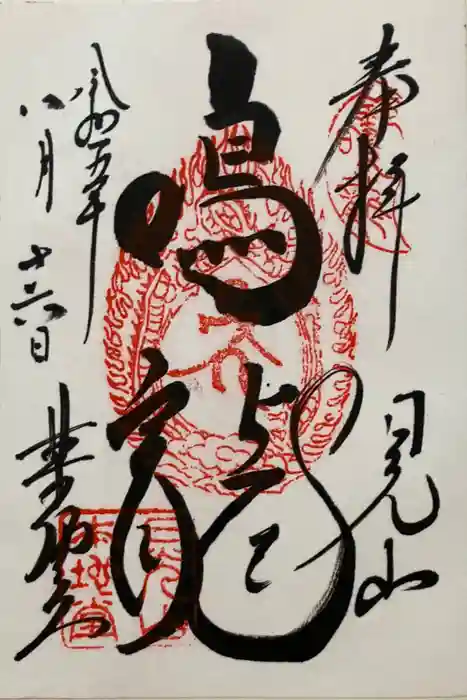 奉拝
日光山
鳴龍
令和五年
八月十六日
薬師堂